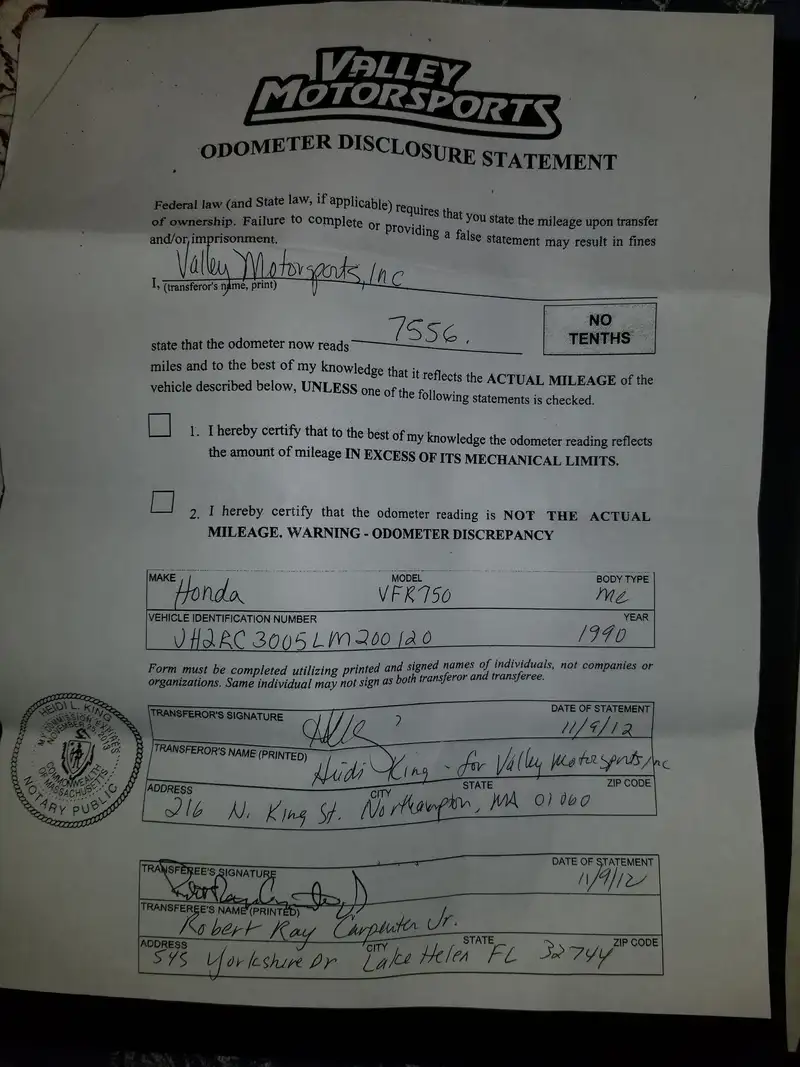 VALLEY
MOTORSPORTS
ODOMETER DISCLOSURE STATEMENT
Federal law (and State law, if applicable) requires that you state the mileage upon transfer
of ownership. Failure to complete or providing a false statement may result in fines
and/or imprisonment.
I, Valley Motorsports, Inc
(transferor's name, print)
state that the odometer now reads 7556.
NO
TENTHS
miles and to the best of my knowledge that it reflects the ACTUAL MILEAGE of the
vehicle described below, UNLESS one of the following statements is checked.
1. I hereby certify that to the best of my knowledge the odometer reading reflects
the amount of mileage IN EXCESS OF ITS MECHANICAL LIMITS.
2. I hereby certify that the odometer reading is NOT THE ACTUAL
MILEAGE. WARNING - ODOMETER DISCREPANCY
MAKE MODEL BODY TYPE
Honda VFR750 MC
VEHICLE IDENTIFICATION NUMBER YEAR
JH2RC3005LM200120 1990
Form must be completed utilizing printed and signed names of individuals, not companies or
organizations. Same individual may not sign as both transferor and transferee.
TRANSFEROR'S SIGNATURE DATE OF STATEMENT
11/9/12
TRANSFEROR'S NAME (PRINTED) Heidi King - for Valley Motorsports, Inc
ADDRESS CITY STATE ZIP CODE
216 N. King St. Northampton, MA 01060
HEIDI L. KING
MY COMMISSION EXPIRES
COMMONWEALTH
OF MASSACHUSETTS
NOTARY PUBLIC
TRANSFEREE'S SIGNATURE DATE OF STATEMENT
11/9/12
TRANSFEREE'S NAME (PRINTED)
Robert Ray Carpenter Jr.
ADDRESS CITY STATE ZIP CODE
545 Yorkshire Dr Lake Helen FL 32744